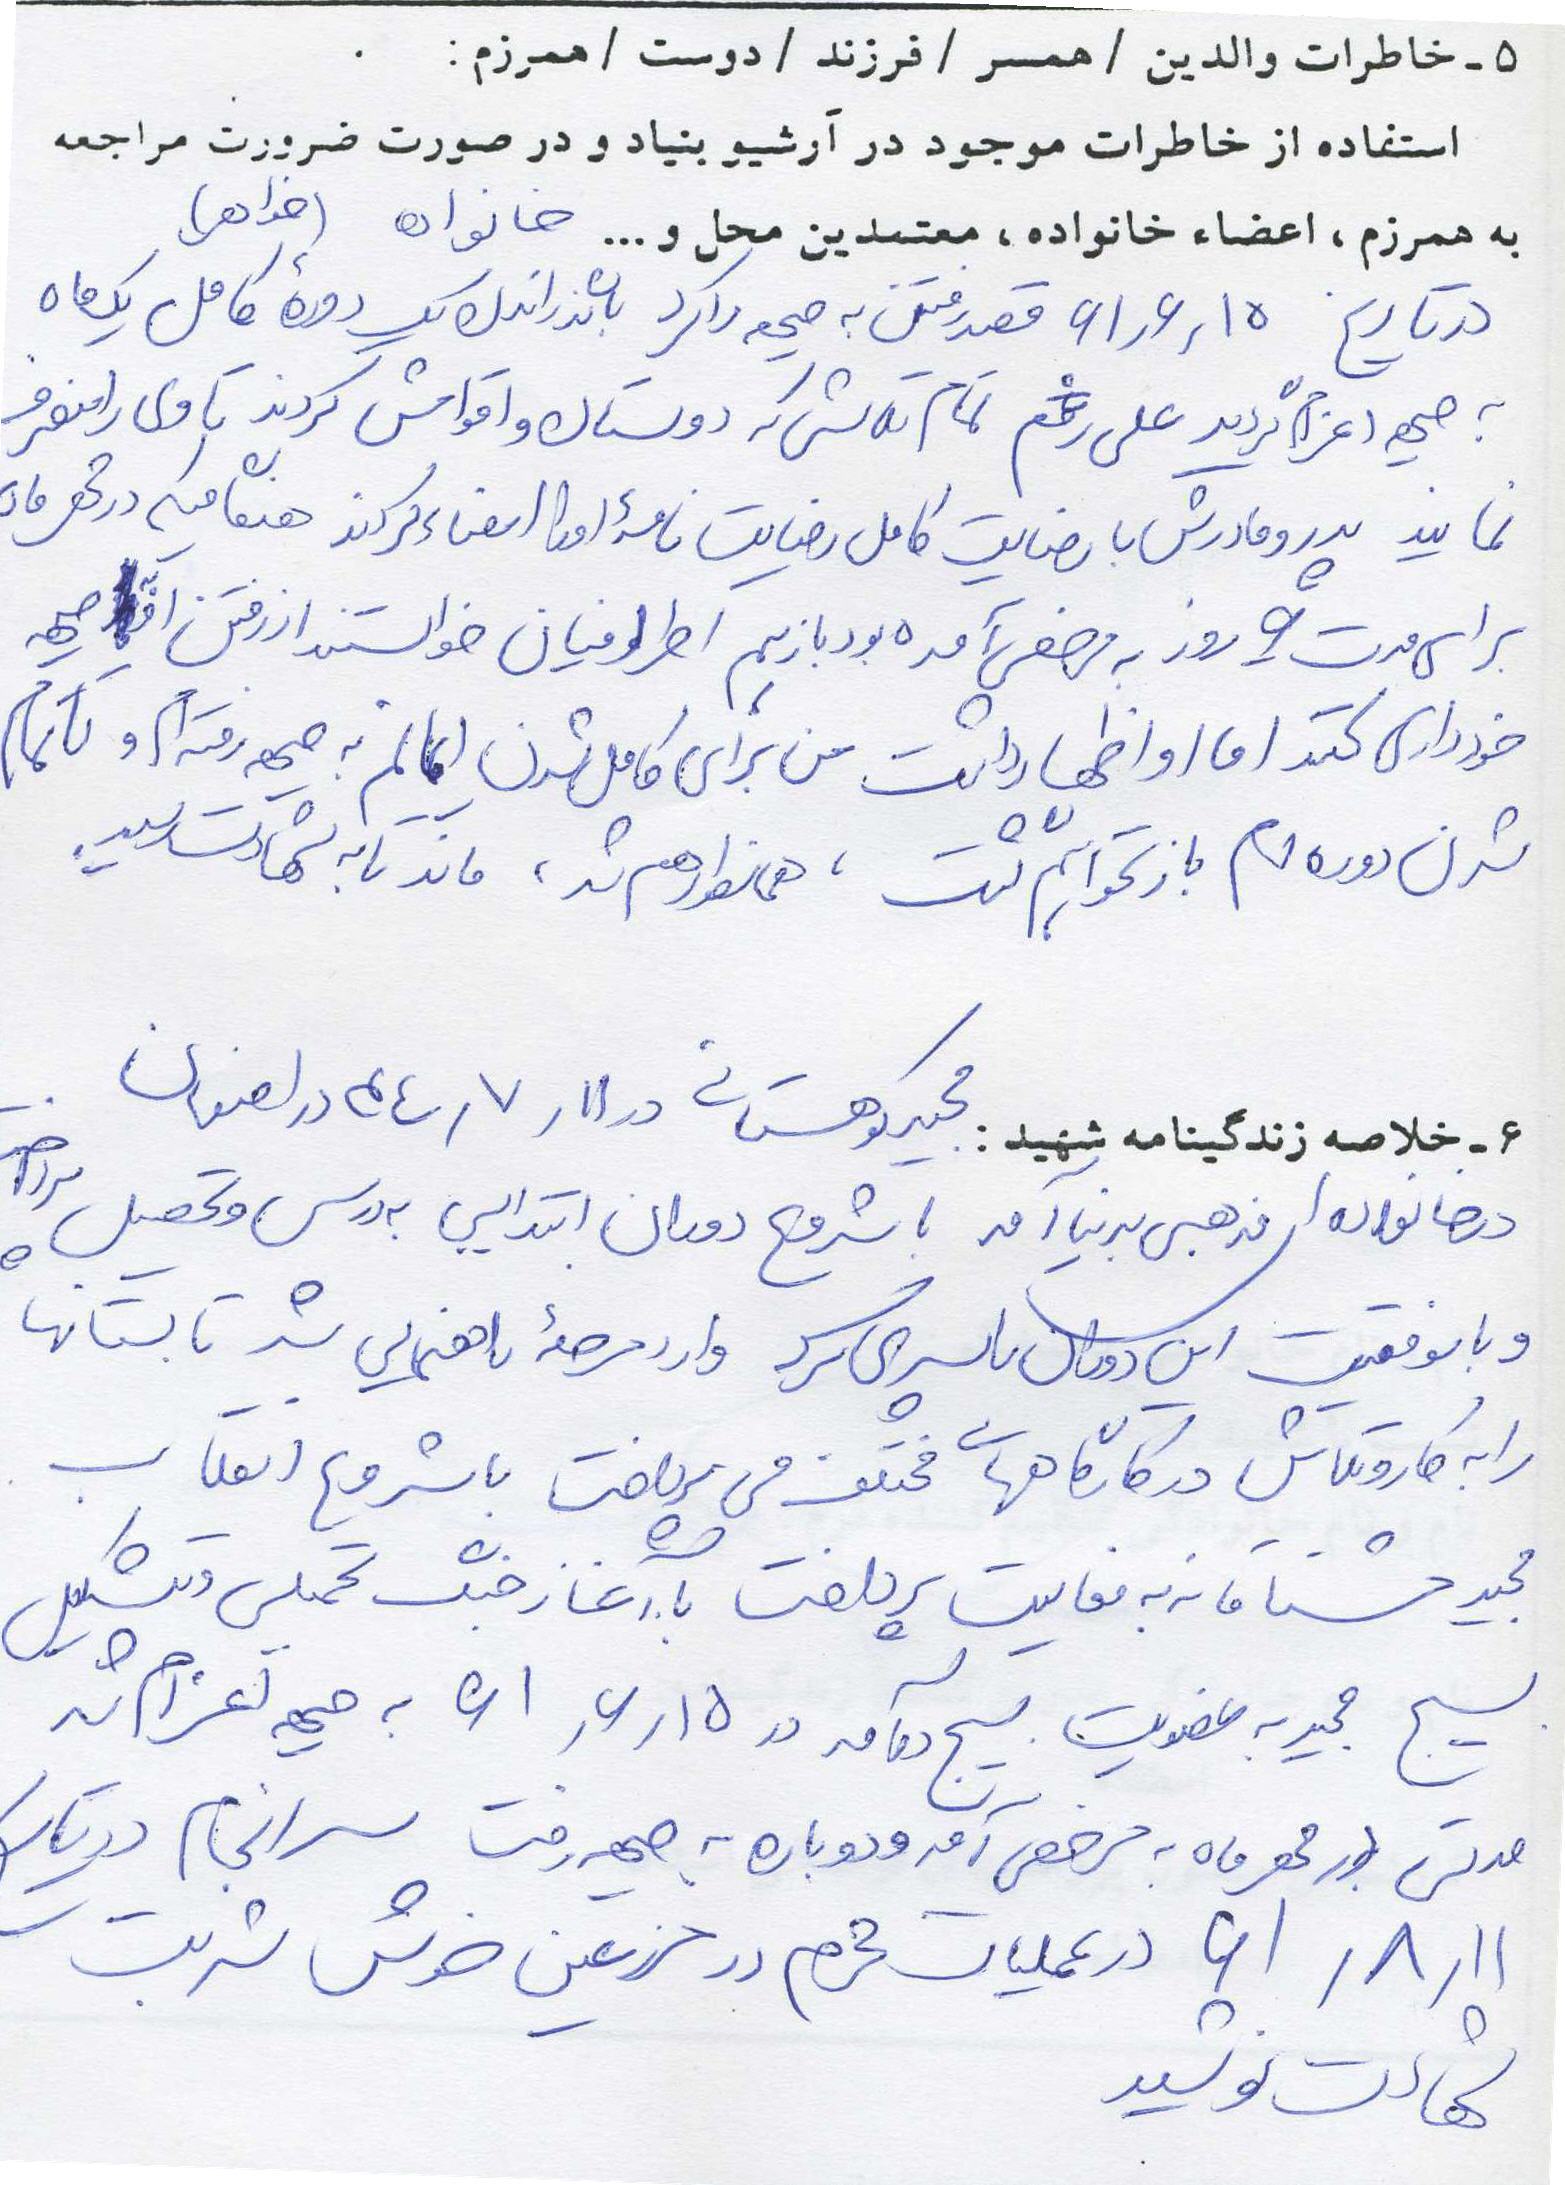 ۵ـ خاطرات والدین / همسر / فرزند / دوست / همرزم :
استفاده از خاطرات موجود در آرشیو بنیاد و در صورت ضرورت مراجعه
به همرزم ، اعضاء خانواده ، معتمدین محل و ... خانواده (خواهر)
در تاریخ ۶۱٫۶٫۱۵ قصد رفتن به جبهه را کرد با گذراندن یک دورهٔ کامل یک ماه
به جبهه اعزام گردید علی رغم تمام تلاشی که دوستان و اقوامش کردند تا وی را منصرف
نمایند پدر و مادرش با رضایت کامل رضایت نامهٔ او را امضاء کردند هنگامیکه در مهر ماه
برای مدت ۹ روز به مرخصی آمده بود باز هم اطرافیان خواستند از رفتن به جبهه
خودداری کند اما او اظهار داشت من برای کامل شدن ایمانم به جبهه رفته‌ام و تا تمام
شدن دوره ام باز نخواهم گشت ، همانطور هم شد ، ماند تا به شهادت رسید.
۶ـ خلاصه زندگینامه شهید : مجید کوهستانی در ۴۴٫۷٫۱۱ در اصفهان
در خانواده ای مذهبی بدنیا آمد با شروع دوران ابتدایی به درس و تحصیل پرداخت
و با موفقیت این دوران را سپری کرد وارد مرحلهٔ راهنمایی شد تابستانها
را به کار و تلاش در کارگاههای مختلف می پرداخت با شروع انقلاب
مجید مشتاقانه به فعالیت پرداخت با آغاز جنگ تحمیلی و تشکیل
بسیج مجید به عضویت بسیج درآمد در ۶۱٫۶٫۱۵ به جبهه اعزام شد
مدتی در مهر ماه به مرخصی آمد و دوباره به جبهه رفت سرانجام در تاریخ
۶۱٫۸٫۱۱ در عملیات محرم در سرزمین عین خوش شربت
شهادت نوشید